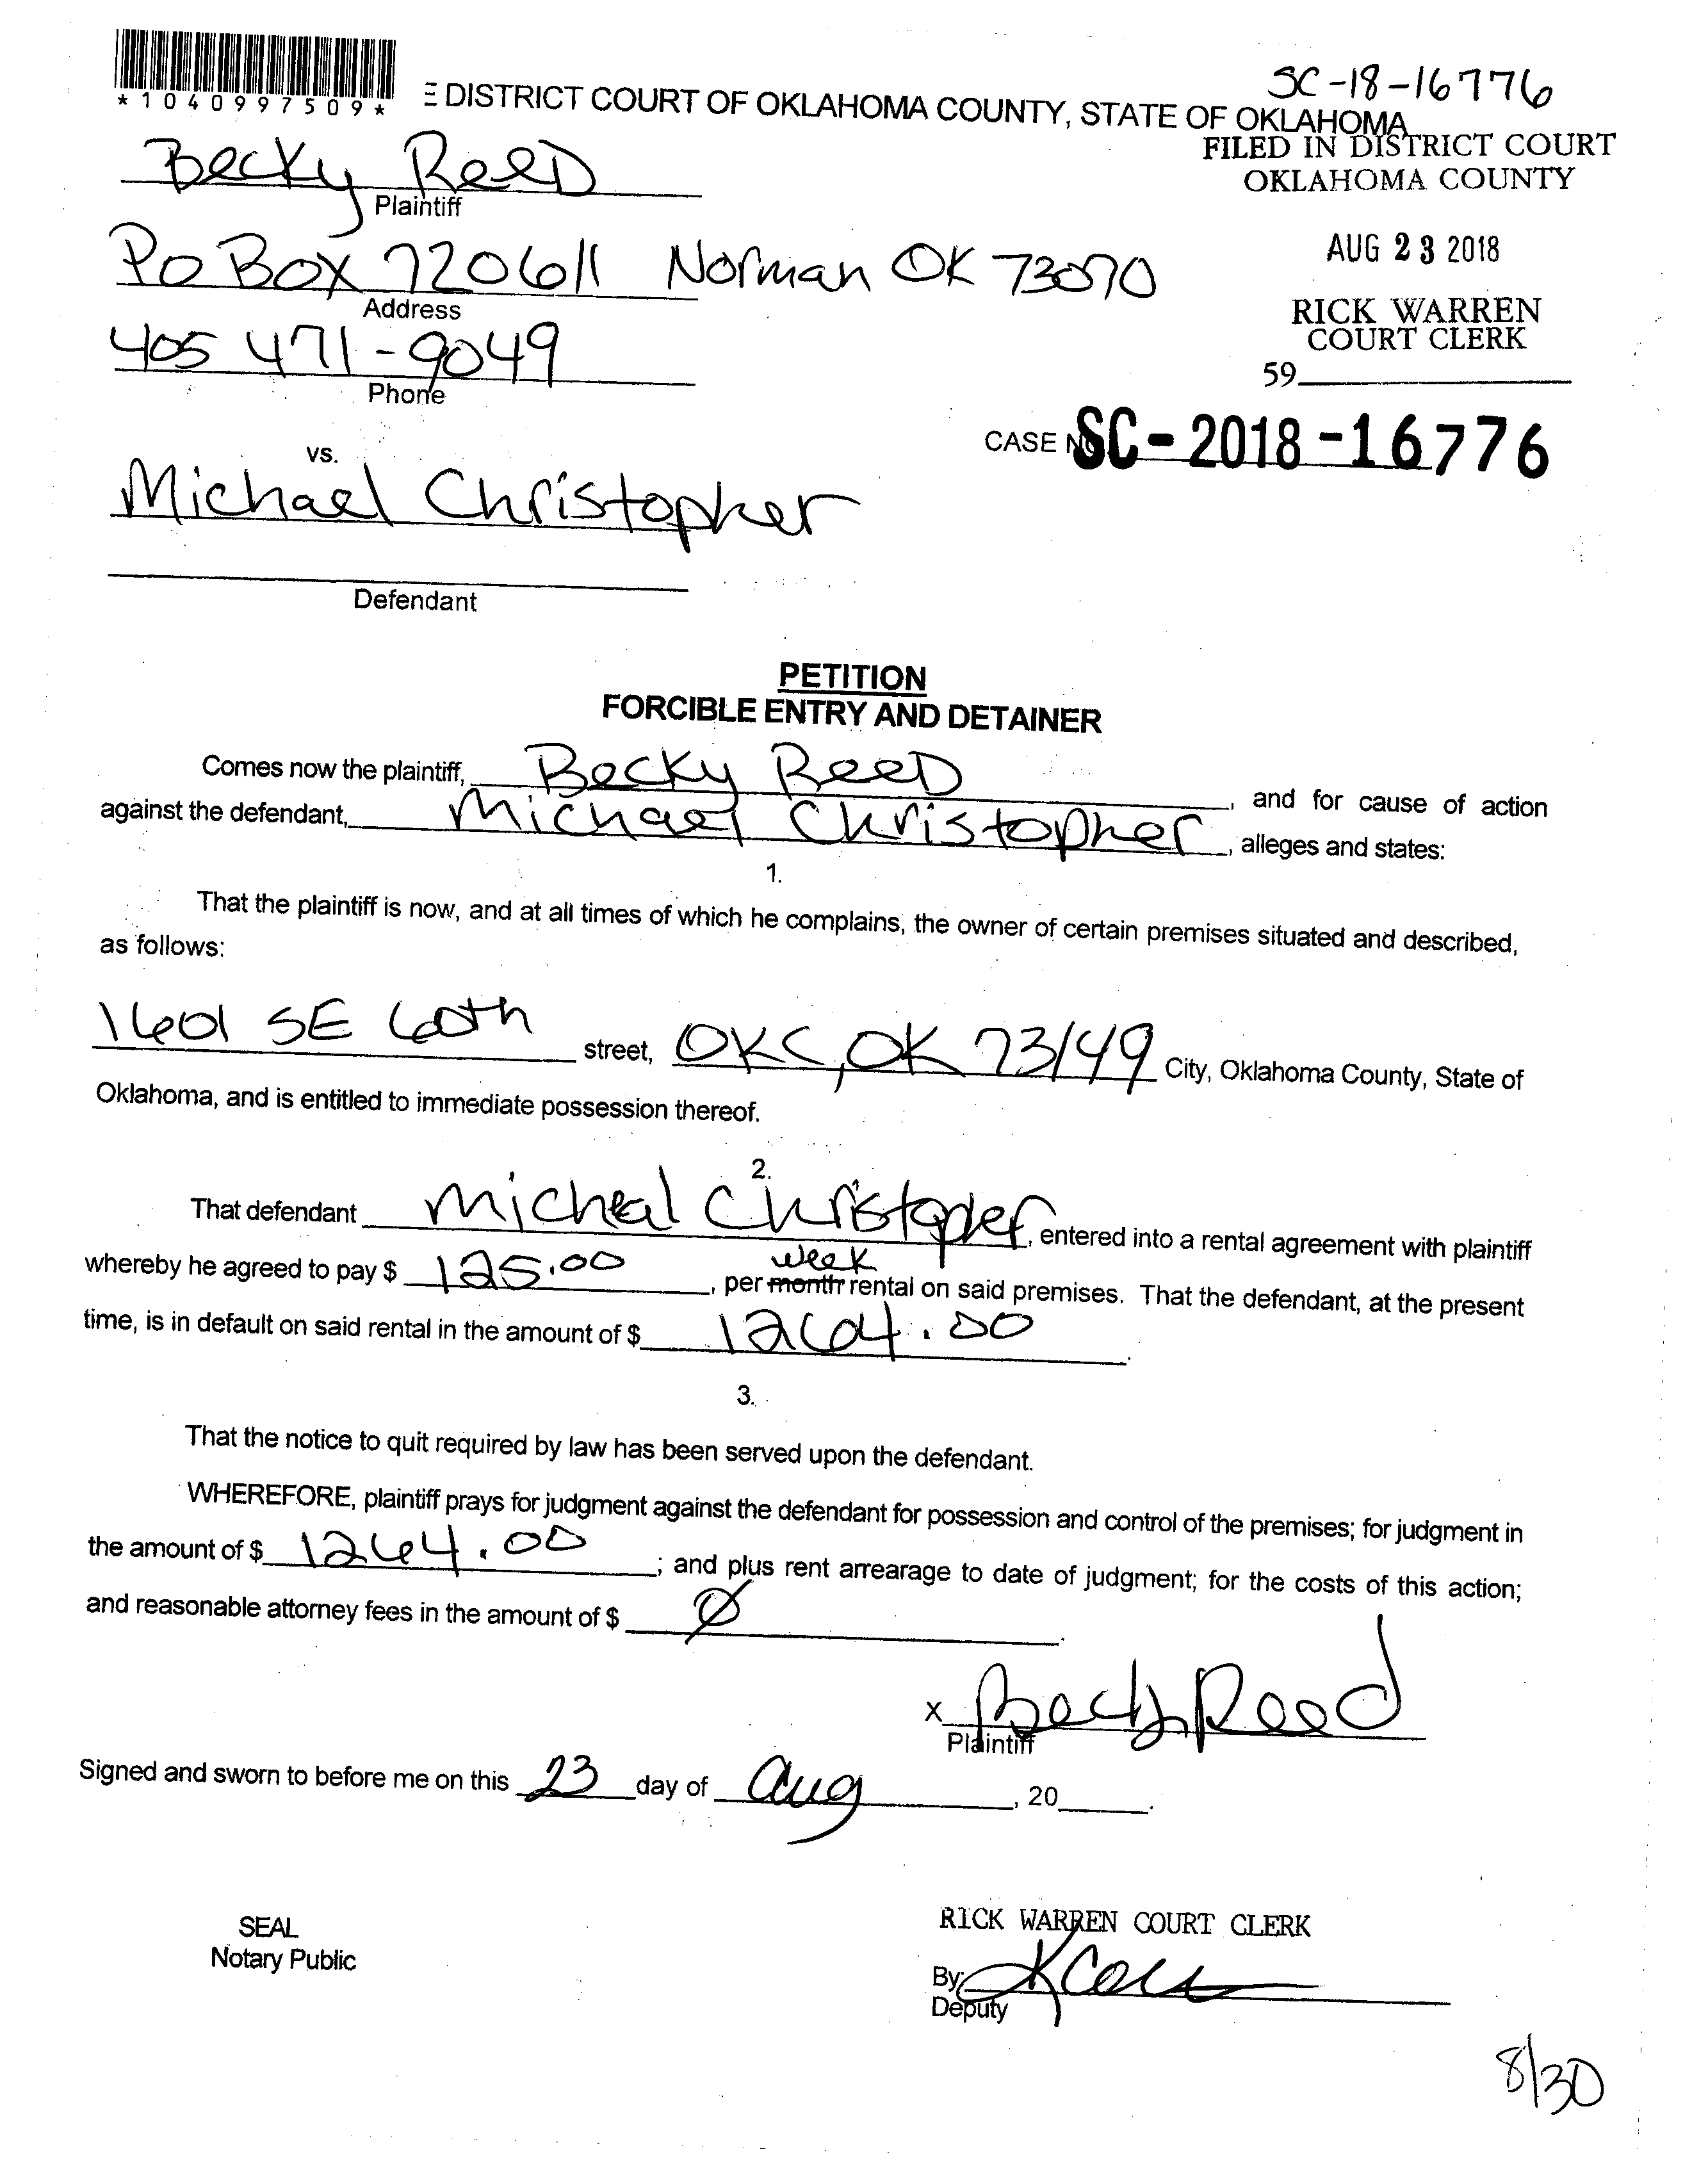 SC-18-16776
*1040997509*
E DISTRICT COURT OF OKLAHOMA COUNTY, STATE OF OKLAHOMA
FILED IN DISTRICT COURT
OKLAHOMA COUNTY
Becky Reed
Plaintiff
PO Box 720611 Norman OK 73070
Address
AUG 23 2018
RICK WARREN
COURT CLERK
405 471-9049
Phone
59
CASE NO SC-2018-16776
vs.
Michael Christopher
Defendant
PETITION
FORCIBLE ENTRY AND DETAINER
Comes now the plaintiff, Becky Reed, and for cause of action
against the defendant, Michael Christopher, alleges and states:
1.
That the plaintiff is now, and at all times of which he complains, the owner of certain premises situated and described,
as follows:
1601 SE 60th street, OKC, OK 73149 City, Oklahoma County, State of
Oklahoma, and is entitled to immediate possession thereof.
2.
That defendant Micheal Christopher, entered into a rental agreement with plaintiff
week
whereby he agreed to pay $ 125.00, per month rental on said premises. That the defendant, at the present
time, is in default on said rental in the amount of $ 1264.00.
3.
That the notice to quit required by law has been served upon the defendant.
WHEREFORE, plaintiff prays for judgment against the defendant for possession and control of the premises; for judgment in
the amount of $ 1264.00; and plus rent arrearage to date of judgment; for the costs of this action;
and reasonable attorney fees in the amount of $ Ø.
X Becky Reed
Plaintiff
Signed and sworn to before me on this 23 day of Aug, 20.
SEAL
Notary Public
RICK WARREN COURT CLERK
By:
Deputy
8/30